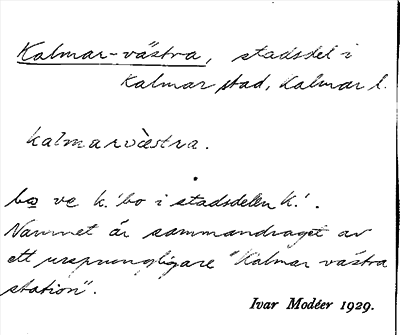 Kalmar-västra, stadsdel i
Kalmar stad, Kalmar l.
kalmarvàestra.
bo ve K. 'bo i stadsdelen K.'.
Namnet är sammandraget av
ett ursprungligare "Kalmar västra
station".
Ivar Modéer 1929.